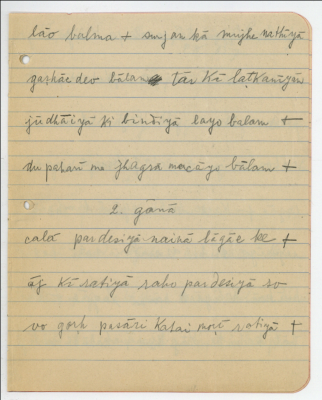 lāo balma + surjan kā mujhe nathiyā
gaṛhāe deo bālam tār kī laṭkanīyān
jūdhāiyā ki bindiyā layo balam +
du paharī me jhagṛa macāye bālam +
2. gānā
calā pardesiyā nainā lāgāe ke +
āj kī ratiyā raho pardesiyā so
vo goṛh pasāri Kaṭai morī ratiyā +